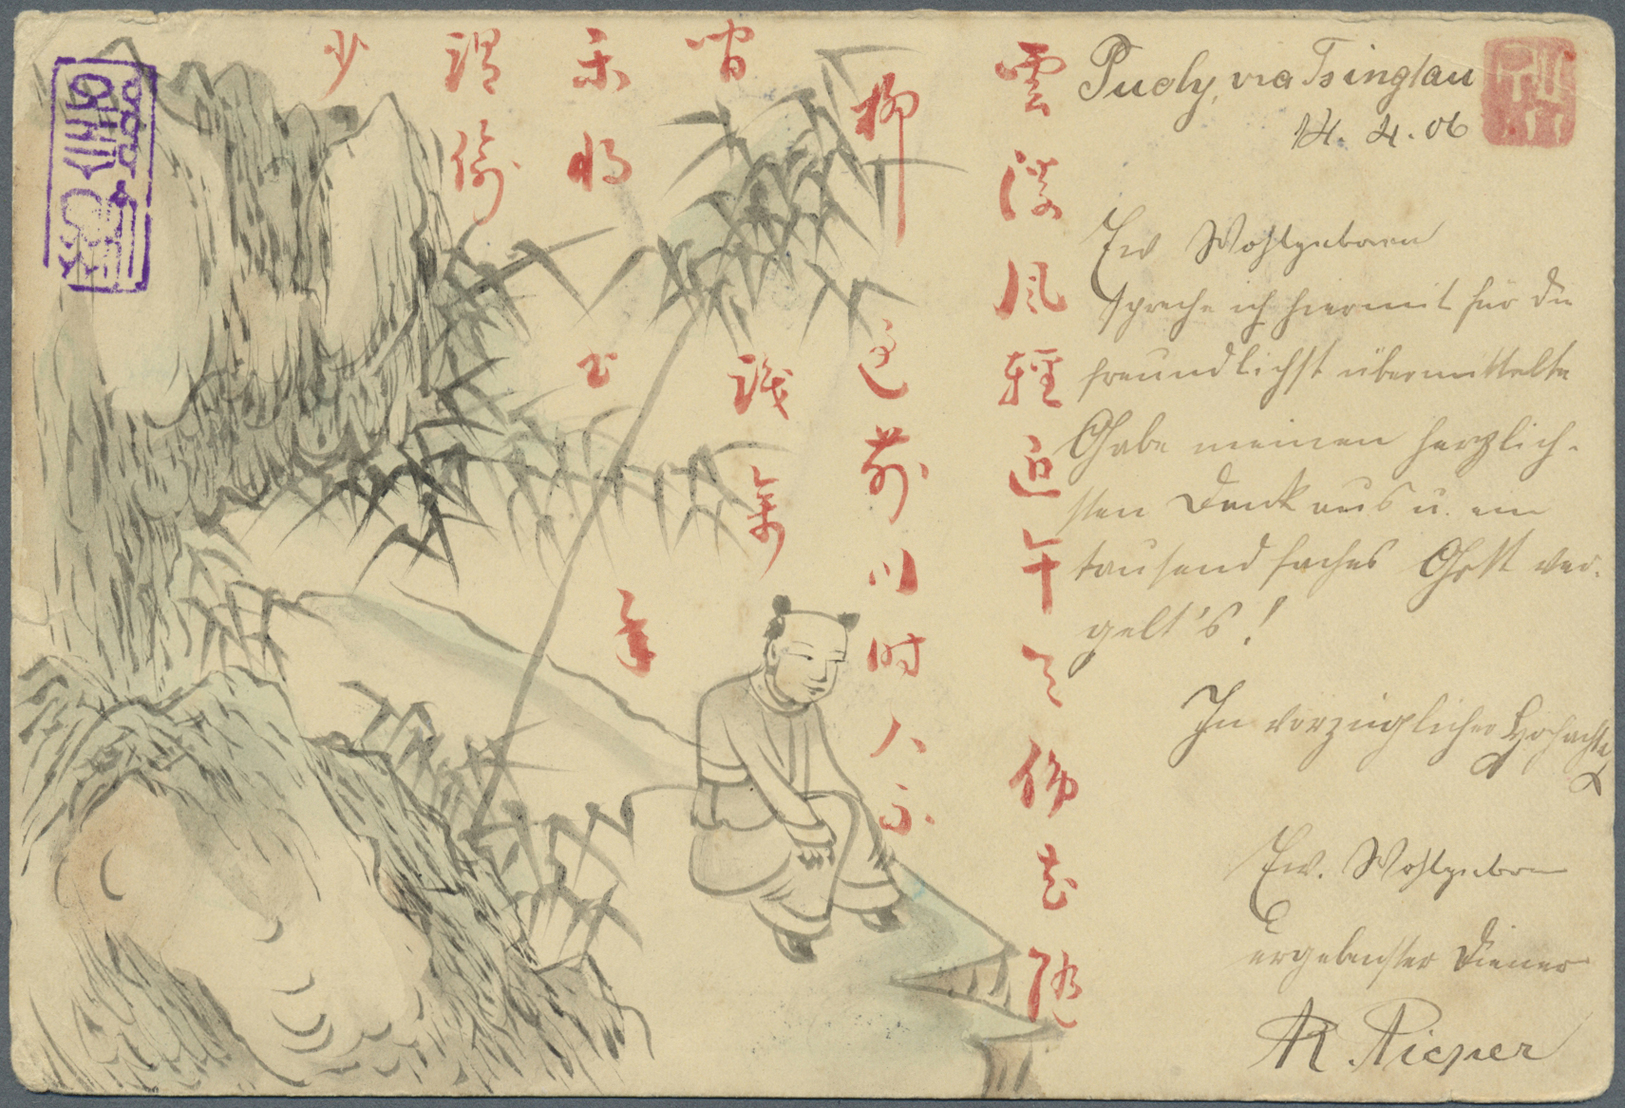 Puoly, via Tsingtau
14. 4. 06
Ew Wohlgeboren
spreche ich hiermit für die
freundlichst übermittelte
Gabe meinen herzlich-
sten Dank aus u. ein
tausendfaches Gott ver-
gelt's!
In vorzüglicher Hochacht
Ew. Wohlgeboren
ergebenster Diener
R. Pieper
雲淡風輕近午天傍花随
柳過前川时人不
識余
心樂將
謂偷
少年